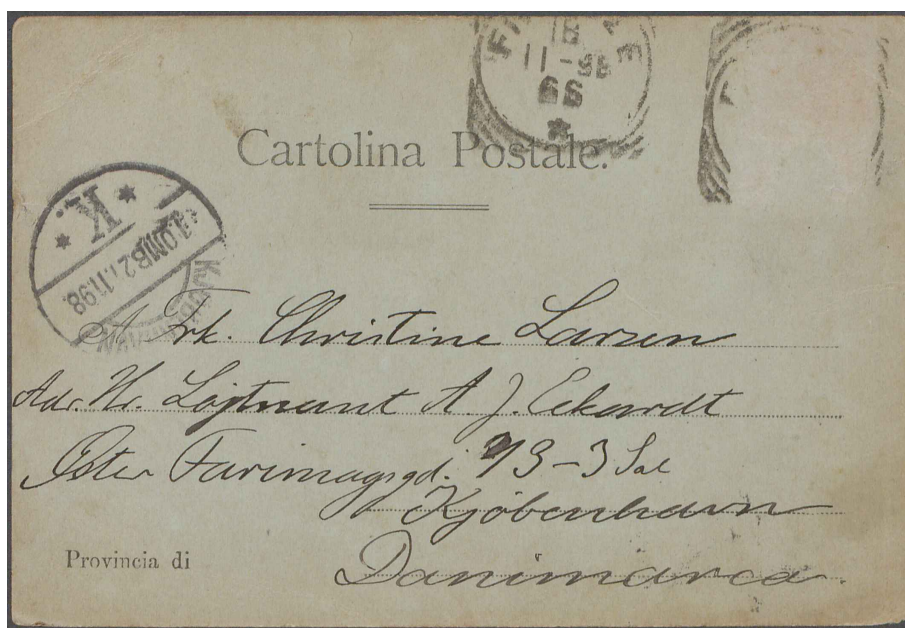 FI E
18
11-98
66
*
Cartolina Postale.
* K. *
1.OMB 2.11.98
KJØBENHAVN
A Frk. Christine Larsen
Adr. Hr. Løjtnant A. J. Eckardt
Øster Farimagsgd. 73-3 Sal
Kjøbenhavn
Provincia di
Danimarca.